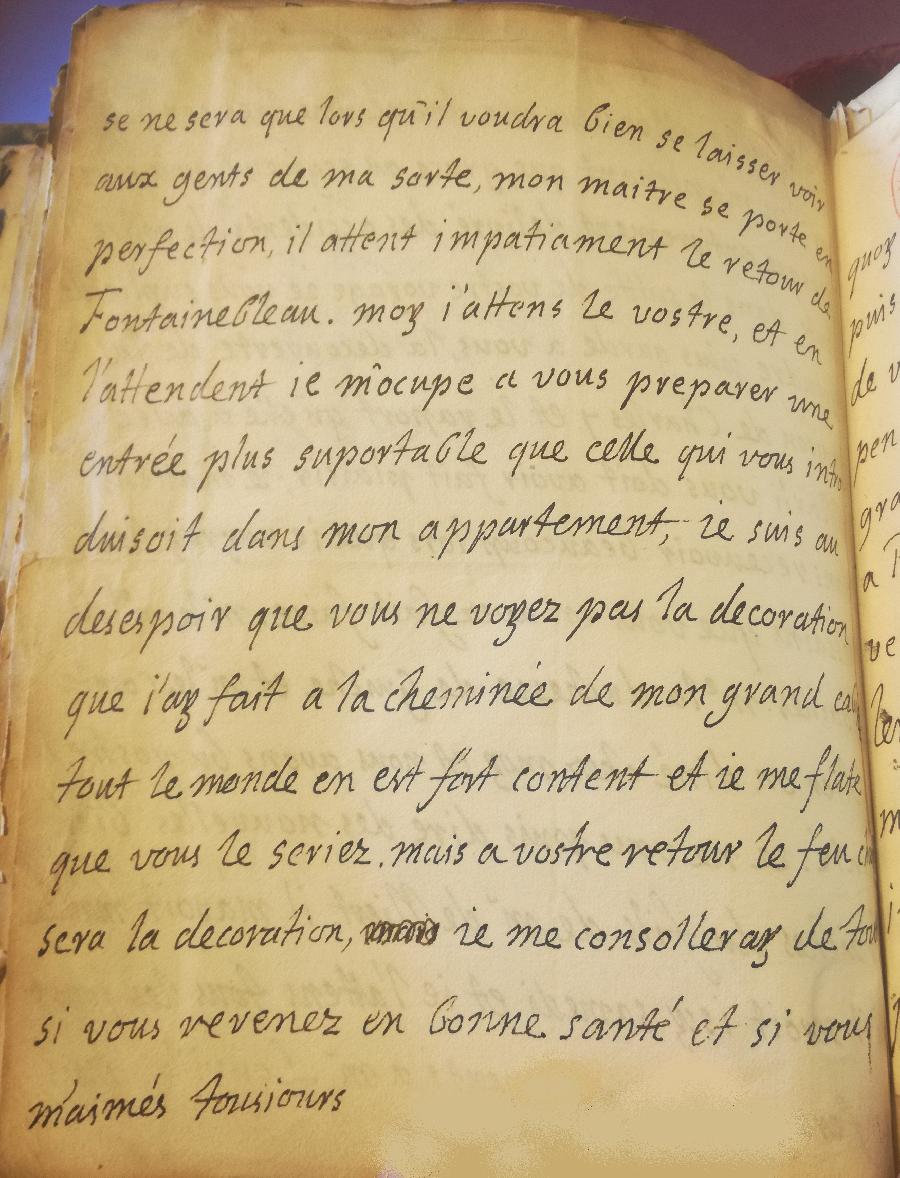 se ne sera que lors qu'il voudra bien se laisser voir
aux gents de ma sorte, mon maitre se porte en
perfection, il attent impatiament le retour de
Fontainebleau. moy i'attens le vostre, et en
l'attendent ie m'ocupe a vous preparer une
entrée plus suportable que celle qui vous intro
duisoit dans mon appartement, ie suis au
desespoir que vous ne voyez pas la decoration
que i'ay fait a la cheminée de mon grand
tout le monde en est fort content et ie me flate
que vous le seriez. mais a vostre retour le feu
sera la decoration, ie me consolleray de
si vous revenez en bonne santé et si vous
m'aimés tousiours
quoy
puis
de
pen
gra
a
ve